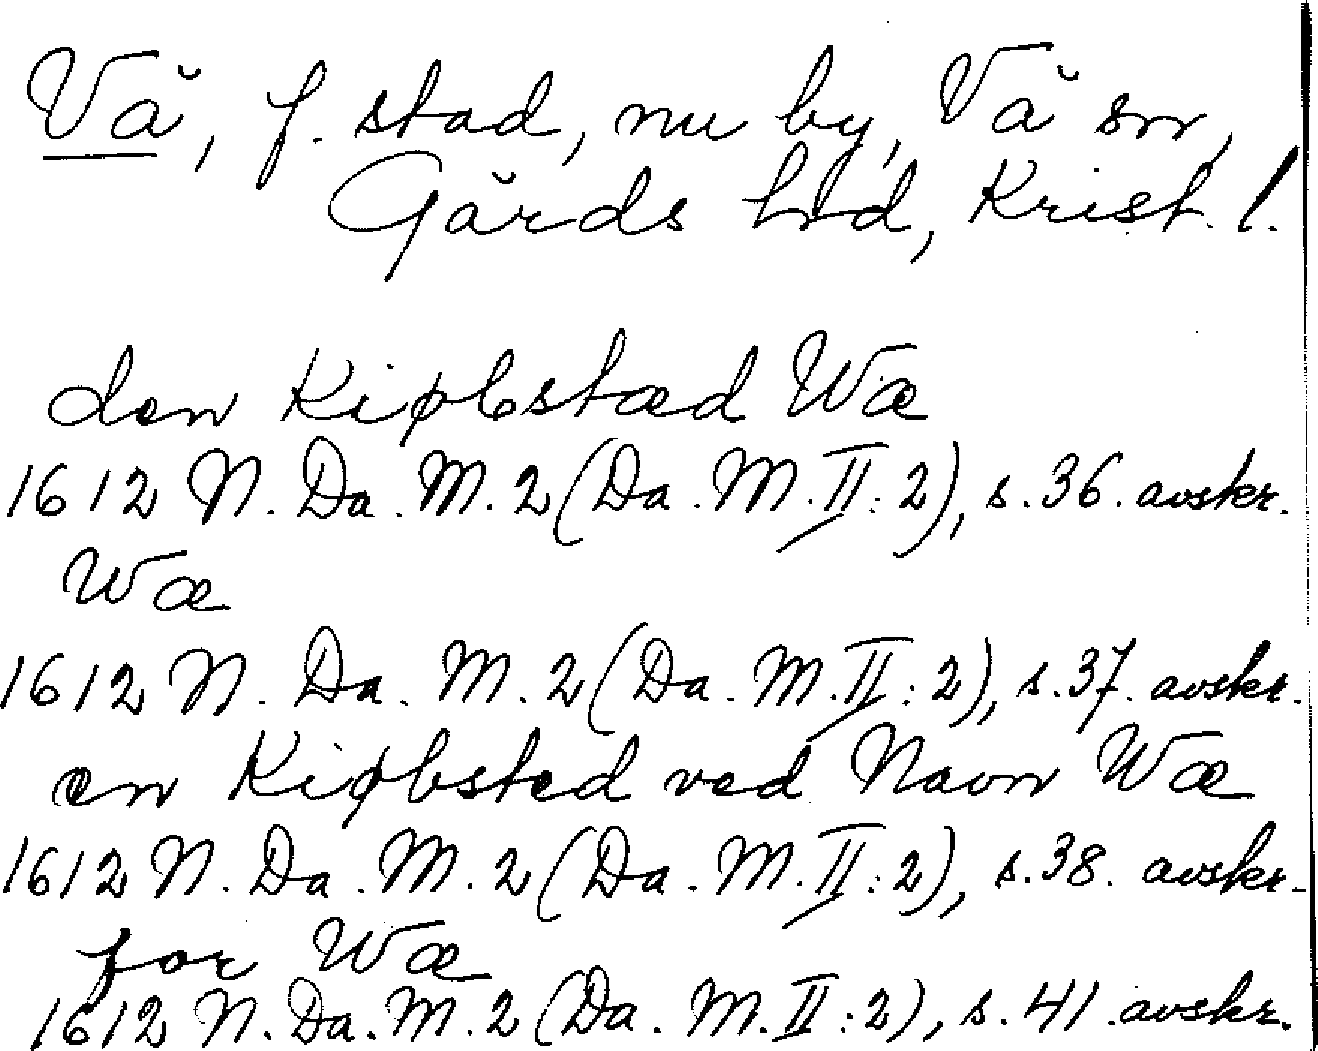 Vå, f. stad, nu by, Vå sn,
Gärds hd, Krist. l.
den Kiøbstæd Wæ
1612 N. Da. M. 2 (Da. M. II: 2), s. 36. avskr.
Wæ
1612 N. Da. M. 2 (Da. M. II: 2), s. 37. avskr.
en Kiøbsted ved Navn Wæ
1612 N. Da. M. 2 (Da. M. II: 2), s. 38. avskr.
for Wæ
1612 N. Da. M. 2 (Da. M. II: 2), s. 41. avskr.